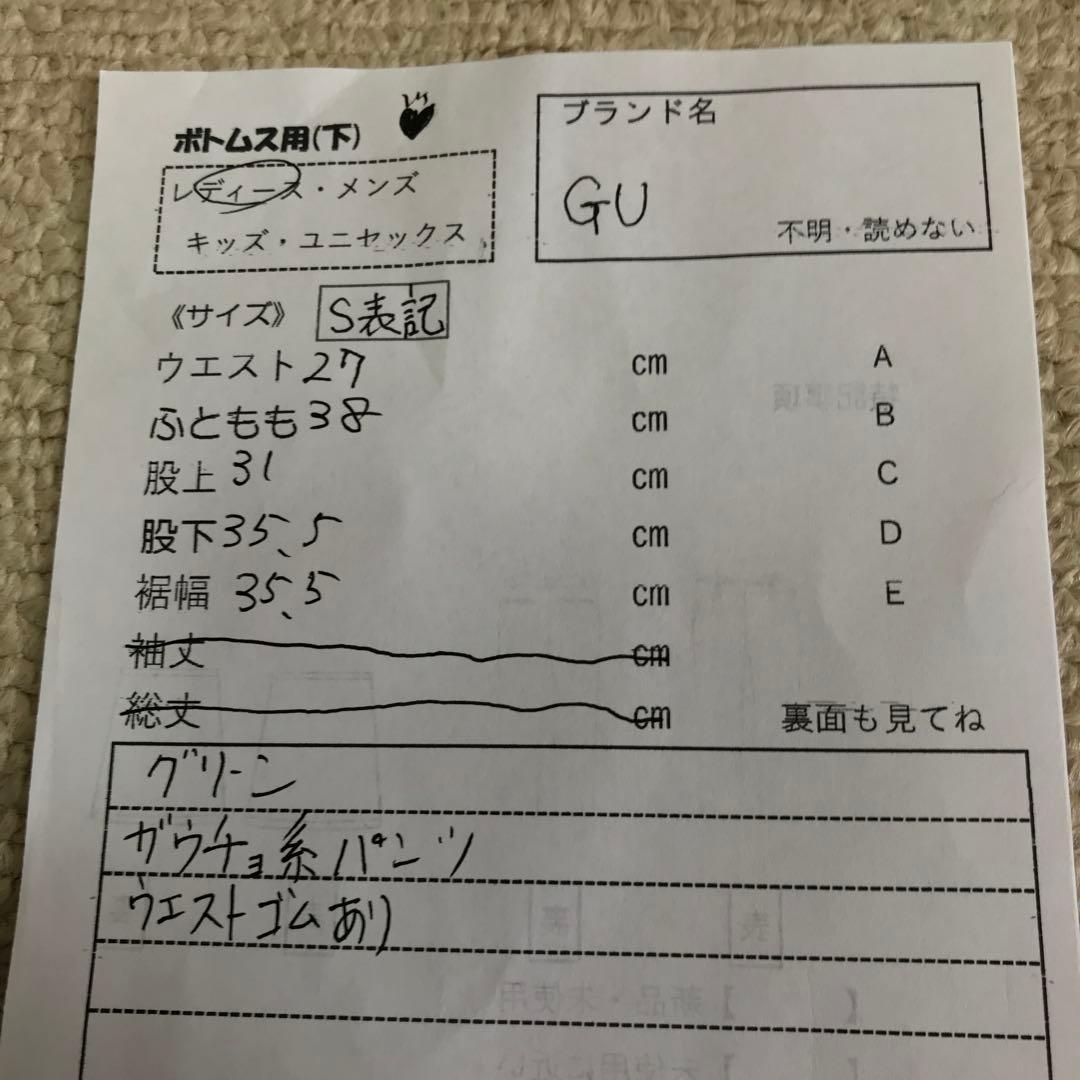 ボトムス用(下)
レディース・メンズ
キッズ・ユニセックス
ブランド名
GU
不明・読めない
《サイズ》 S表記
ウエスト 27 cm A
ふともも 38 cm B
股上 31 cm C
股下 35.5 cm D
裾幅 35.5 cm E
袖丈 cm
総丈 cm
裏面も見てね
グリーン
ガウチョ系パンツ
ウエストゴムあり